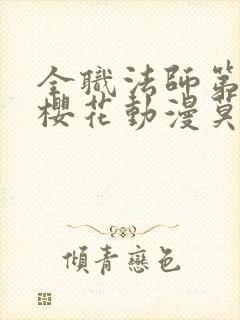 全職法師第
櫻花動漫莫
傾青戀色